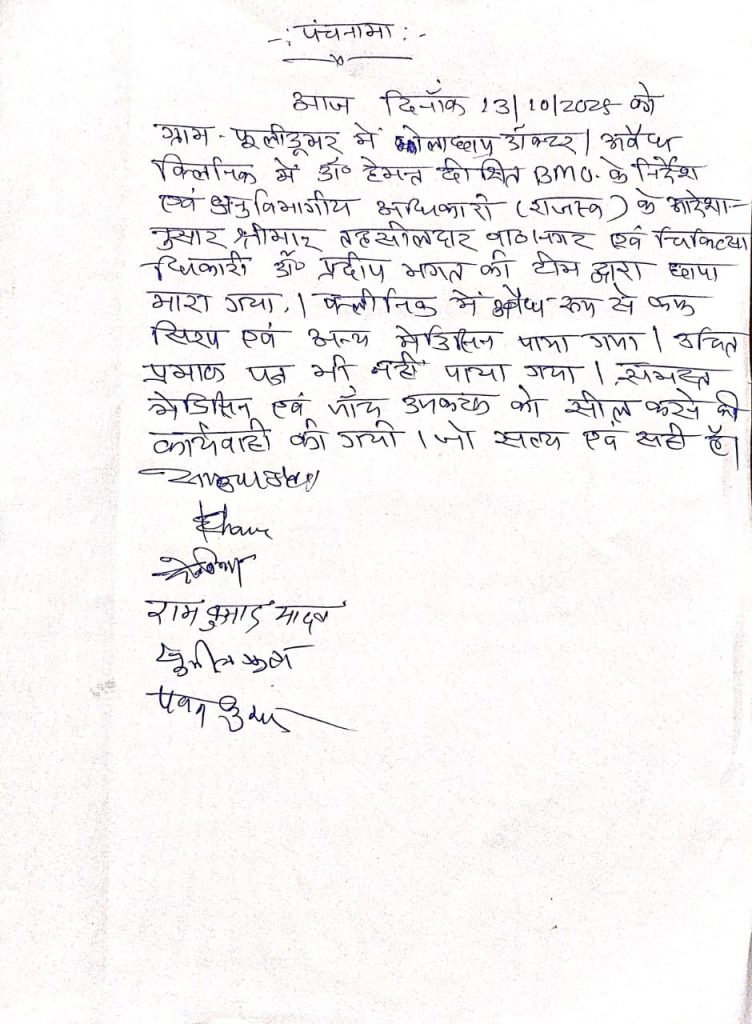 -: पंचनामा :-
आज दिनाँक 13/10/2025 को
ग्राम - फूलीडूमर में झोलाछाप डॉक्टर / अवैध
क्लिनिक में डॉ० हेमन्त दीक्षित BMO. के निर्देश
एवं अनुविभागीय अधिकारी (राजस्व) के आदेशा-
नुसार श्रीमान तहसीलदार वाड्रफनगर एवं चिकित्सा
धिकारी डॉ० प्रदीप भगत की टीम द्वारा छापा
मारा गया, । क्लीनिक में अवैध रूप से कफ
सिरप एवं अन्य मेडिसिन पाया गया । उचित
प्रमाण पत्र भी नहीं पाया गया । समस्त
मेडिसिन एवं जाँच उपकरण को सील करने की
कार्यवाही की गयी । जो सत्य एवं सही है।
रामकुमार यादव
पवन कुमार